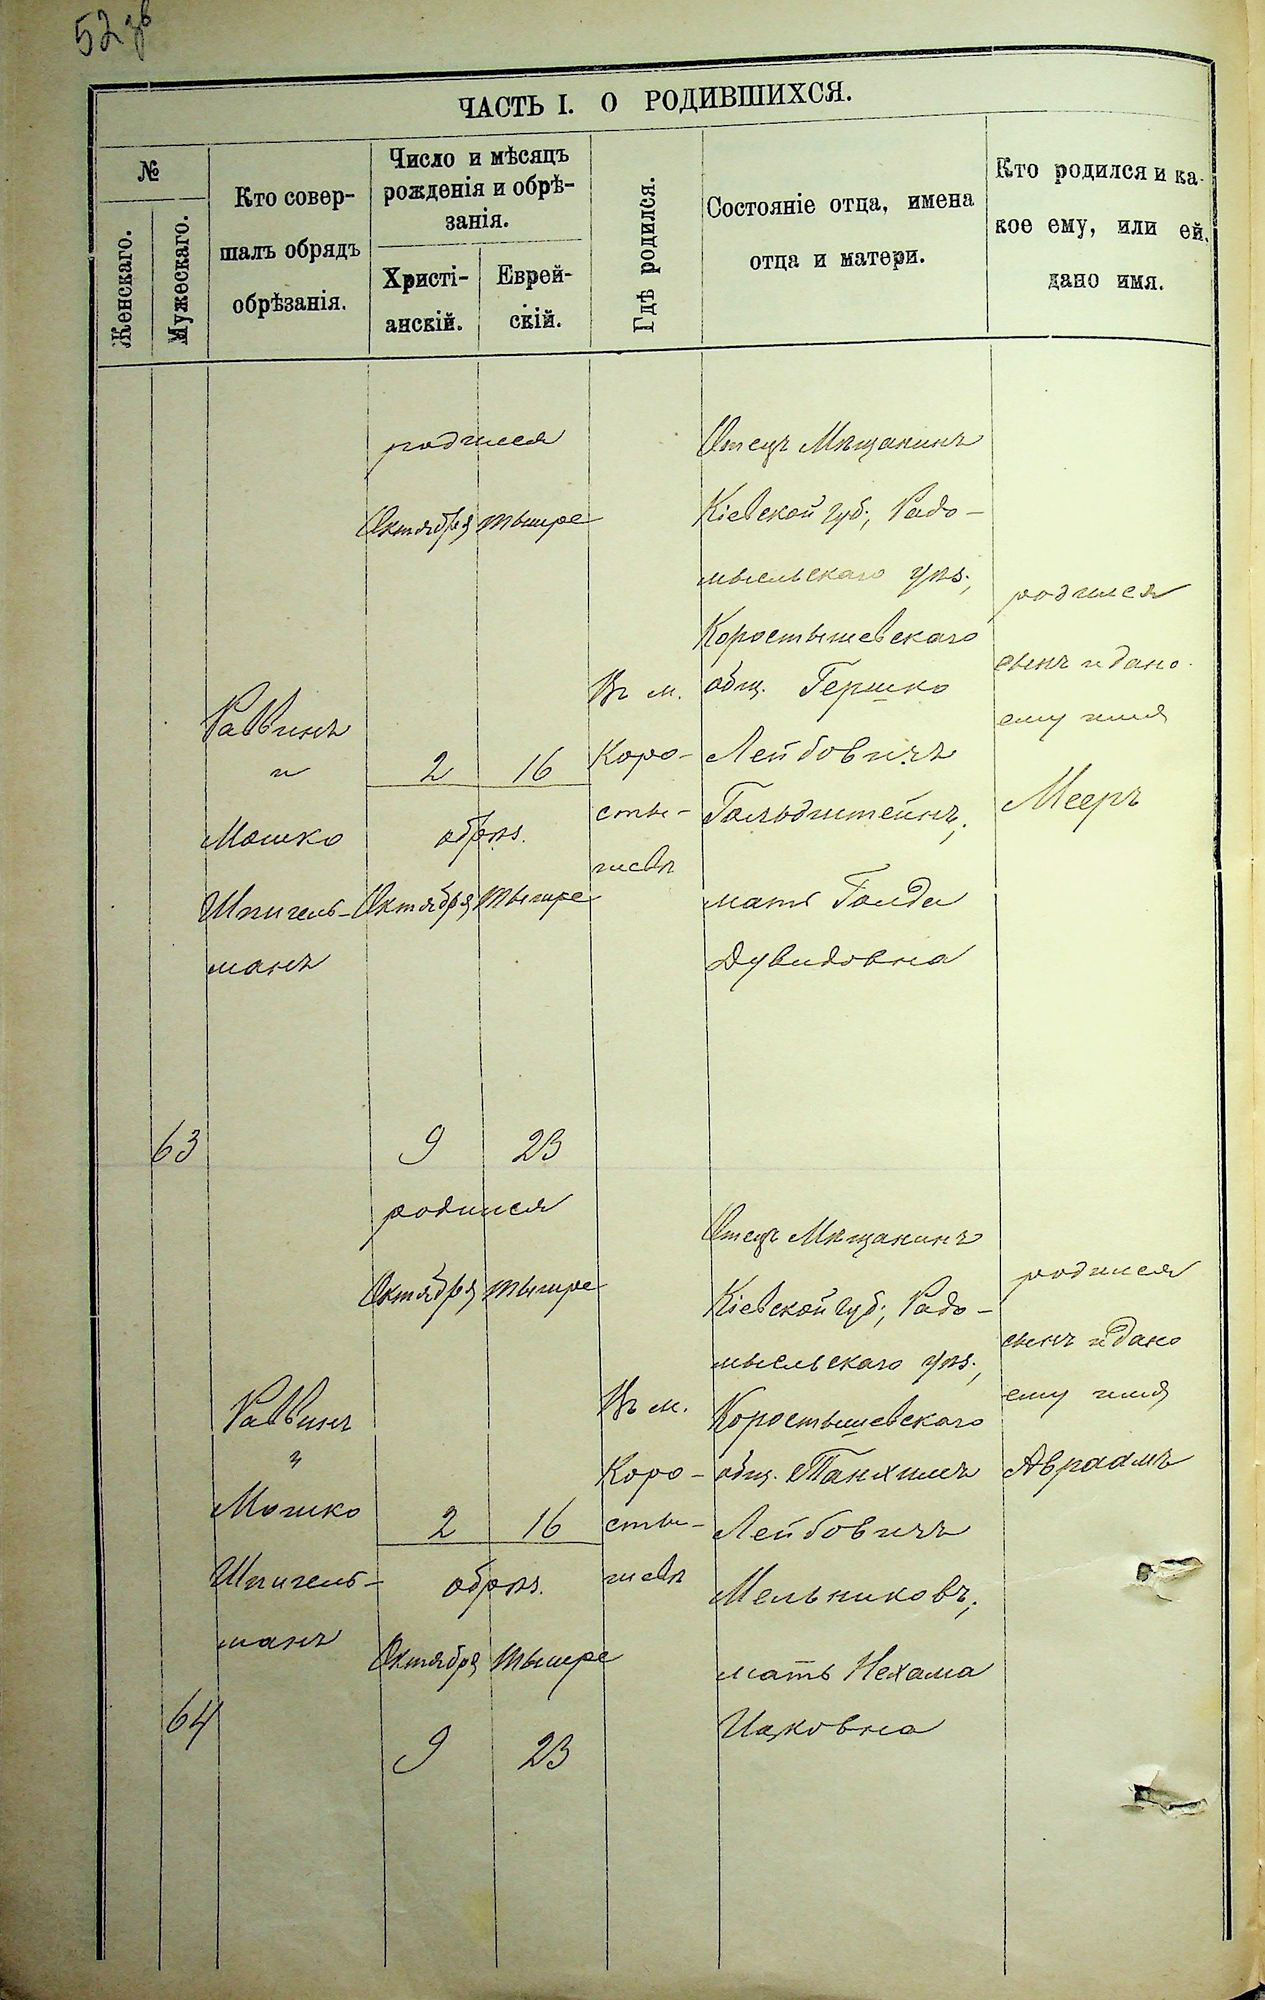 52 об
ЧАСТЬ I. О РОДИВШИХСЯ.
№
Женскаго.
Мужескаго.
Кто совер-
шалъ обрядъ
обрѣзанія.
Число и мѣсяцъ
рожденія и обрѣ-
занія.
Христі-
анскій.
Еврей-
скій.
Гдѣ родился.
Состояніе отца, имена
отца и матери.
Кто родился и ка-
кое ему, или ей,
дано имя.
63
Раввинъ
и
Мошко
Шпигель-
манъ
родился
Октября Тышре
2 16
обрѣз.
Октября Тышре
9 23
Въ м.
Коро-
сты-
шевѣ
Отецъ Мѣщанинъ
Кіевской губ., Радо-
мысльскаго уѣз.,
Коростышевскаго
общ. Гершко
Лейбовичъ
Гольдштейнъ,
мать Голда
Дувидовна
родился
сынъ и дано
ему имя
Мееръ
64
Раввинъ
и
Мошко
Шпигель-
манъ
родился
Октября Тышре
2 16
обрѣз.
Октября Тышре
9 23
Въ м.
Коро-
сты-
шевѣ
Отецъ Мѣщанинъ
Кіевской губ., Радо-
мысльскаго уѣз.,
Коростышевскаго
общ. Танхимъ
Лейбовичъ
Мельниковъ,
мать Нехама
Ицковна
родился
сынъ и дано
ему имя
Авраамъ